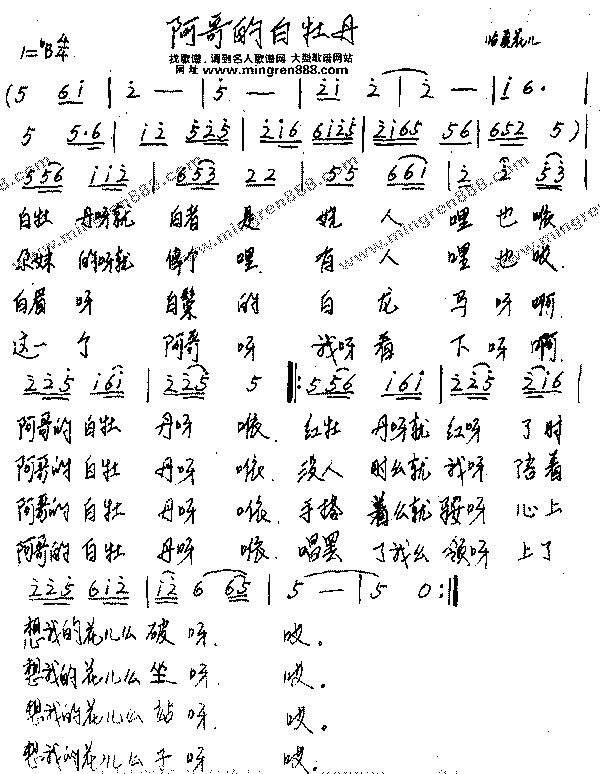 阿哥的白牡丹
临夏花儿
1=♭B 2/4
找歌谱,请到名人歌谱网 大型歌谱网站
网址 www.mingren888.com
(5 6i | 2 — | 5 — | 2i 2 | 2 — | i 6·
5 5·6 | i2 525 | 2i6 6i25 | 2i65 56 | 652 5 )
556 ii2 | 653 22 | 55 66i | 2 2 53
白牡 丹呀就 白者 是 娆 人 哩也 哎
朵妹 的呀就 俦个 哩 有 人 哩也
白眉 呀 白鬃 的 白 龙 马呀啊
这一 个 阿哥 呀 我呀看 下呀啊
225 i6i | 225 5 |: 556 i6i | 225 2i6
阿哥的 白牡 丹呀 咳 红牡 丹呀就 红呀 了时
阿哥的 白牡 丹呀 咳 没人 时么就 我呀 陪着
阿哥的 白牡 丹呀 咳 手搭 着么就 鞍呀 心上
阿哥的 白牡 丹呀 咳 唱罢 了我么 颏呀 上了
225 6i2 | i2 6 65 | 5 — | 5 0 :|
想我的 花儿么 破 呀 哎。
想我的 花儿么 坐 呀 哎。
想我的 花儿么 站 呀 哎。
想我的 花儿么 于 呀 哎。
www.mingren888.com